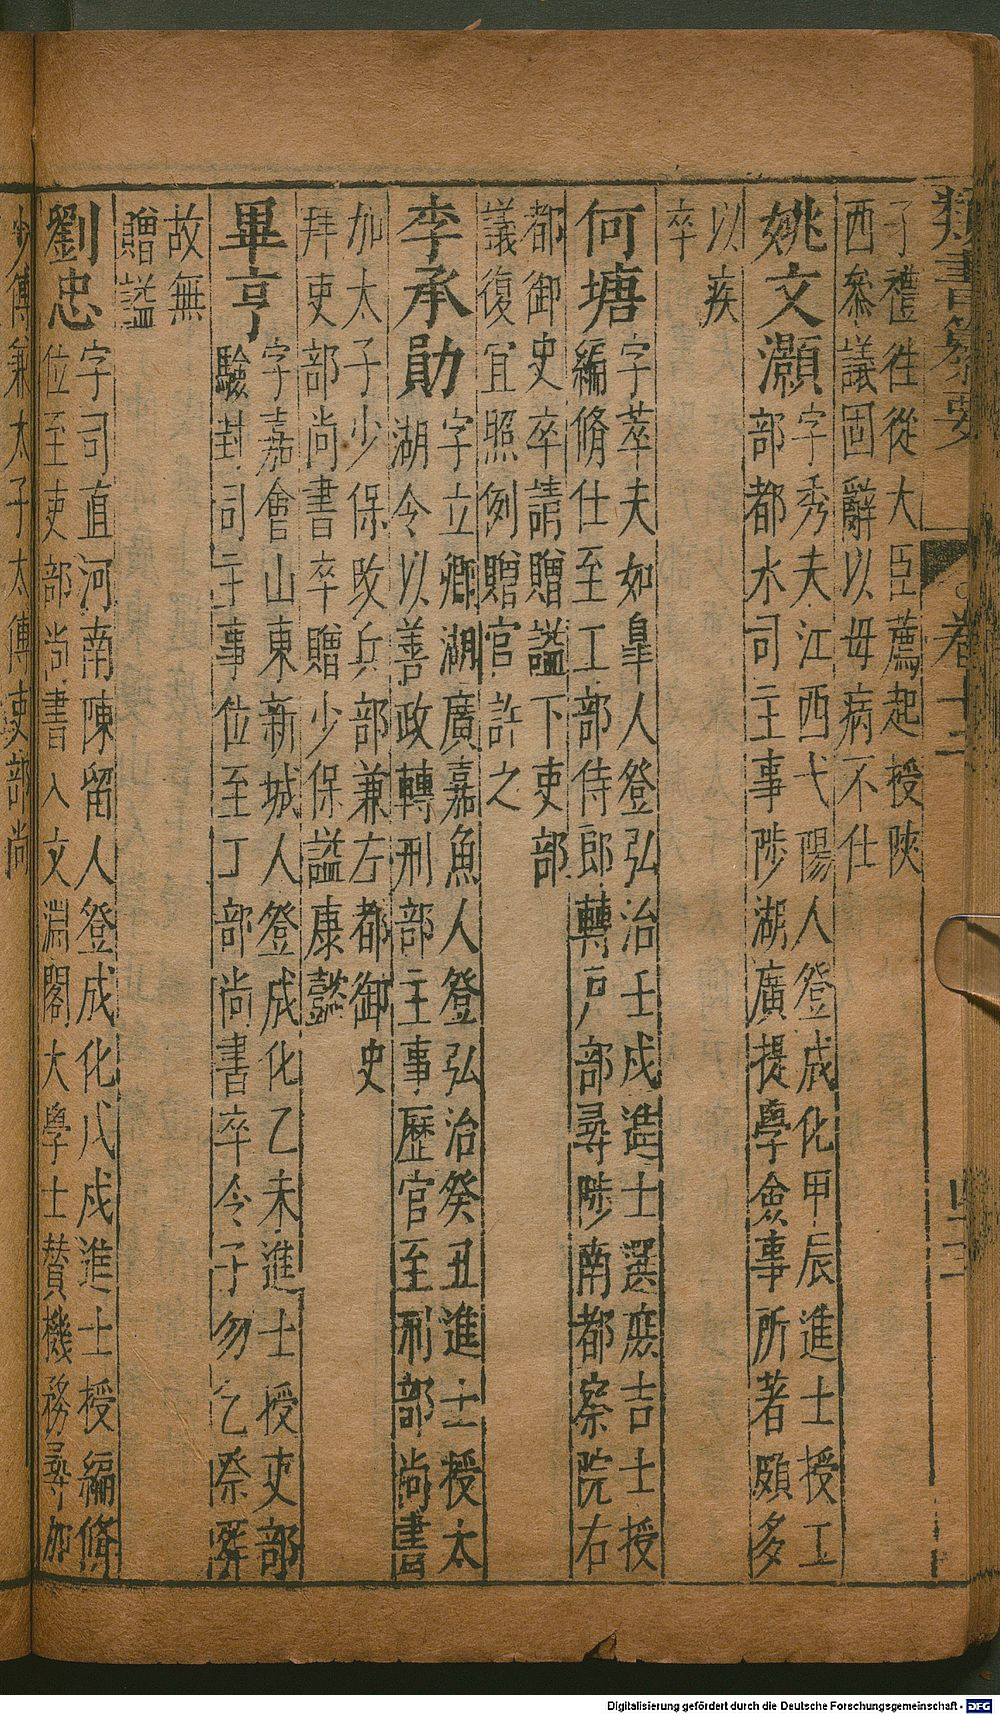 類書纂要
卷十二
子禮徃從大臣薦起授陜
西叅議固辭以毋病不仕
姚文灝字秀夫江西弋陽人登成化甲辰進士授工
部都水司主事陟湖廣提學僉事所著頗多
以疾
卒
何塘字萃夫如皐人登弘治壬戍進士選庶吉士授
編脩仕至工部侍郎轉戶部尋陟南都察院右
都御史卒請贈諡下吏部
議復宜照例贈官許之
李承勛字立卿湖廣嘉魚人登弘治癸丑進士授太
湖令以善政轉刑部主事歷官至刑部尚書
加太子少保攺兵部兼左都御史
拜吏部尚書卒贈少保諡康懿
畢亨字嘉會山東新城人登成化乙未進士授吏部
驗封司主事位至工部尚書卒令子勿乞祭塟
故無
贈諡
劉忠字司直河南陳留人登成化戊戍進士授編脩
位至吏部尚書入文淵閣大學士賛機務尋加
少傅兼太子太傅吏部尚
Digitalisierung gefördert durch die Deutsche Forschungsgemeinschaft - DFG